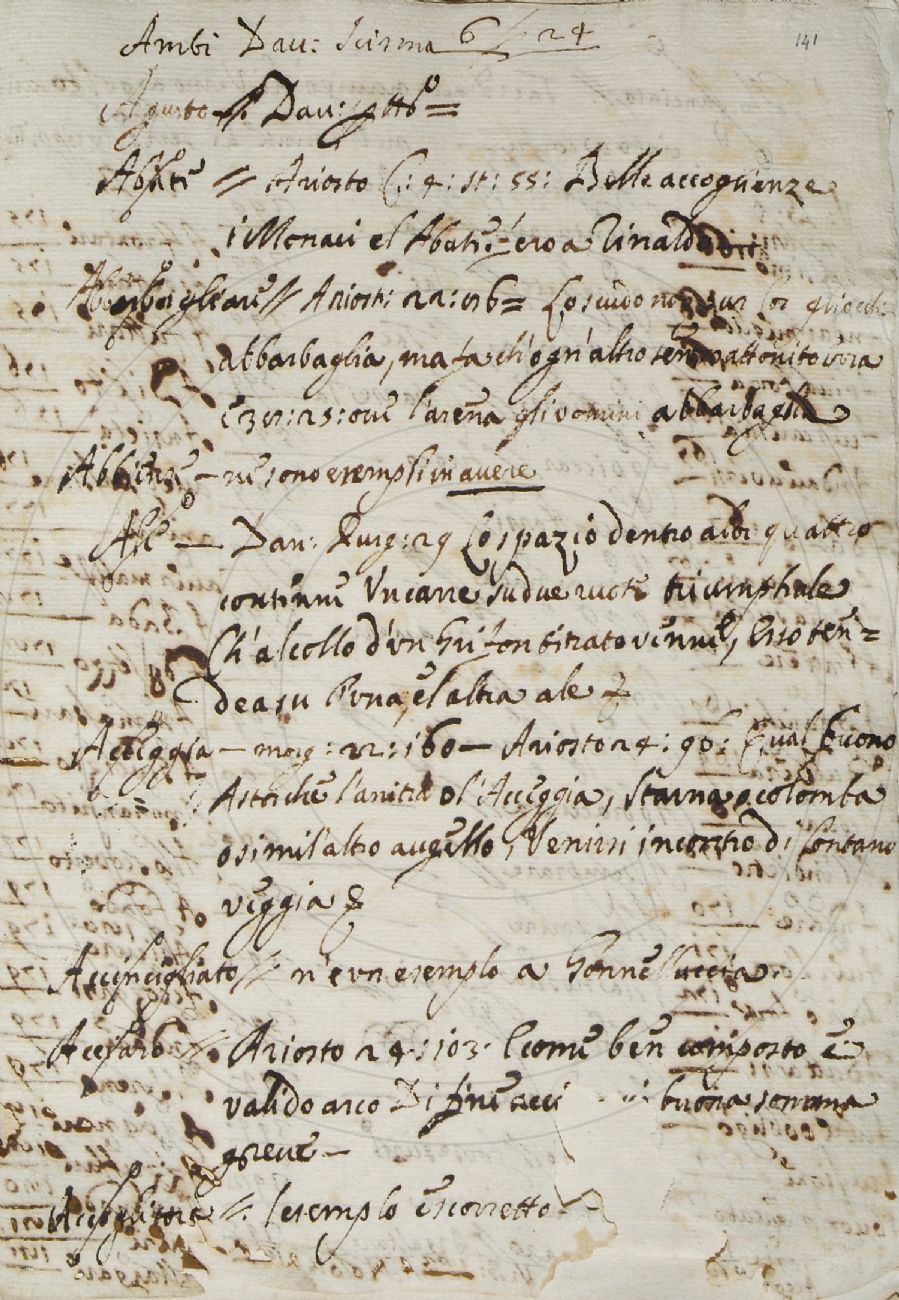 141
Ambi Dav: Scisma 6 // 24
Agosto // Dav:
Abate // Ariosto C: 4: st: 55: Belle accoglienze
i Monaci el Abate fero a Rinaldo
Abbarbagliare // Ariost: 22: Lo scudo non pur lor gliocchi
abbarbaglia, ma fa ch'ogn'altro senso attonito
: 25: ove l'arena gli uomini abbarbaglia
Abbiere – ne sono esempli in avere
– Dan: Purg: 29 Lo spazio dentro a lor quattro
contenne Un carro su due ruote triumphale
Ch'al collo d'un Grifon tirato venne, Esso ten=
dea su l'una, e l'altra ale &
Acceggia – morg: 22: 160 – Ariosto 24: 96: Qual buono
Astor che l'anitra o l'Acceggia, Starna o colomba
o simil altro augello, Venirsi incontro di lontano
veggia &
Accincigliato // n'e un esemplo a Gonnelluccia
// Ariosto 24: 103. E come ben composto e
valido arco Di fine acci buona somma
greve –
Accoglitore // l'esemplo è scorretto